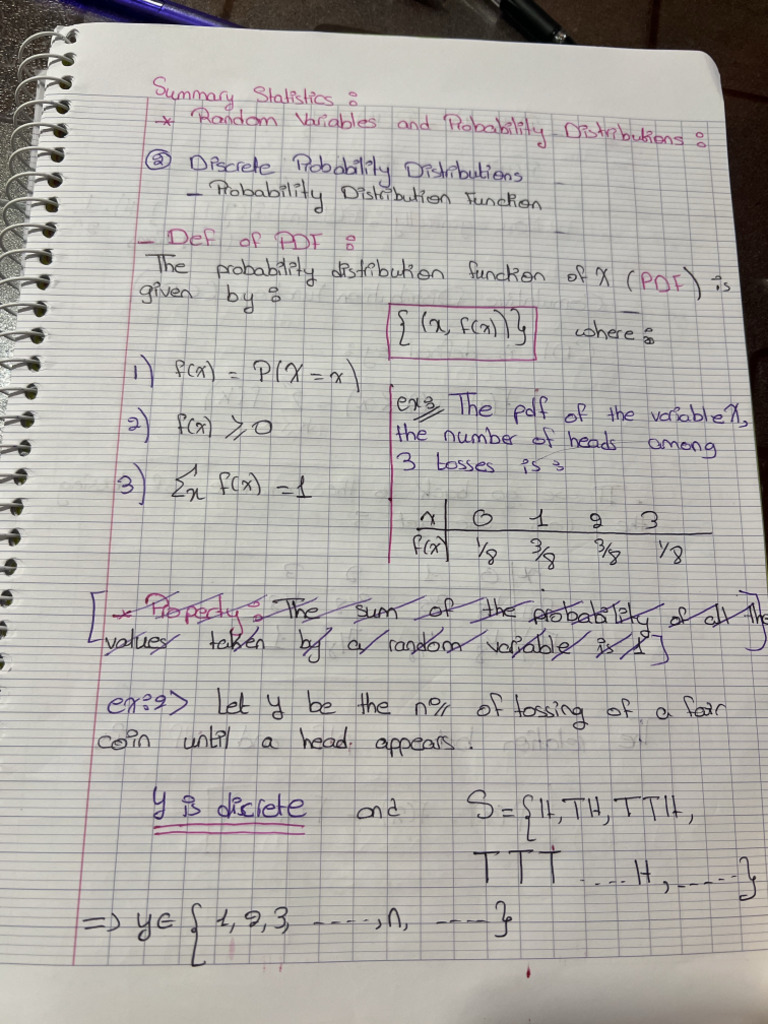 Summary Statistics :
* Random Variables and Probability Distributions :
② Discrete Probability Distributions
- Probability Distribution Function
- Def of PDF :
The probability distribution function of X (PDF) is
given by :
{(x, f(x))} where :
1) f(x) = P(X = x)
2) f(x) ⩾ 0
3) Σx f(x) = 1
ex: The pdf of the variable X,
the number of heads among
3 tosses is :
x 0 1 2 3
f(x) 1/8 3/8 3/8 1/8
[* Property : The sum of the probability of all the
values taken by a random variable is 1]
ex:2> Let y be the no of tossing of a fair
coin until a head appears.
y is discrete and S = {H, TH, TTH,
TTT ....H, ......}
=> y ∈ {1, 2, 3, ....., n, .....}